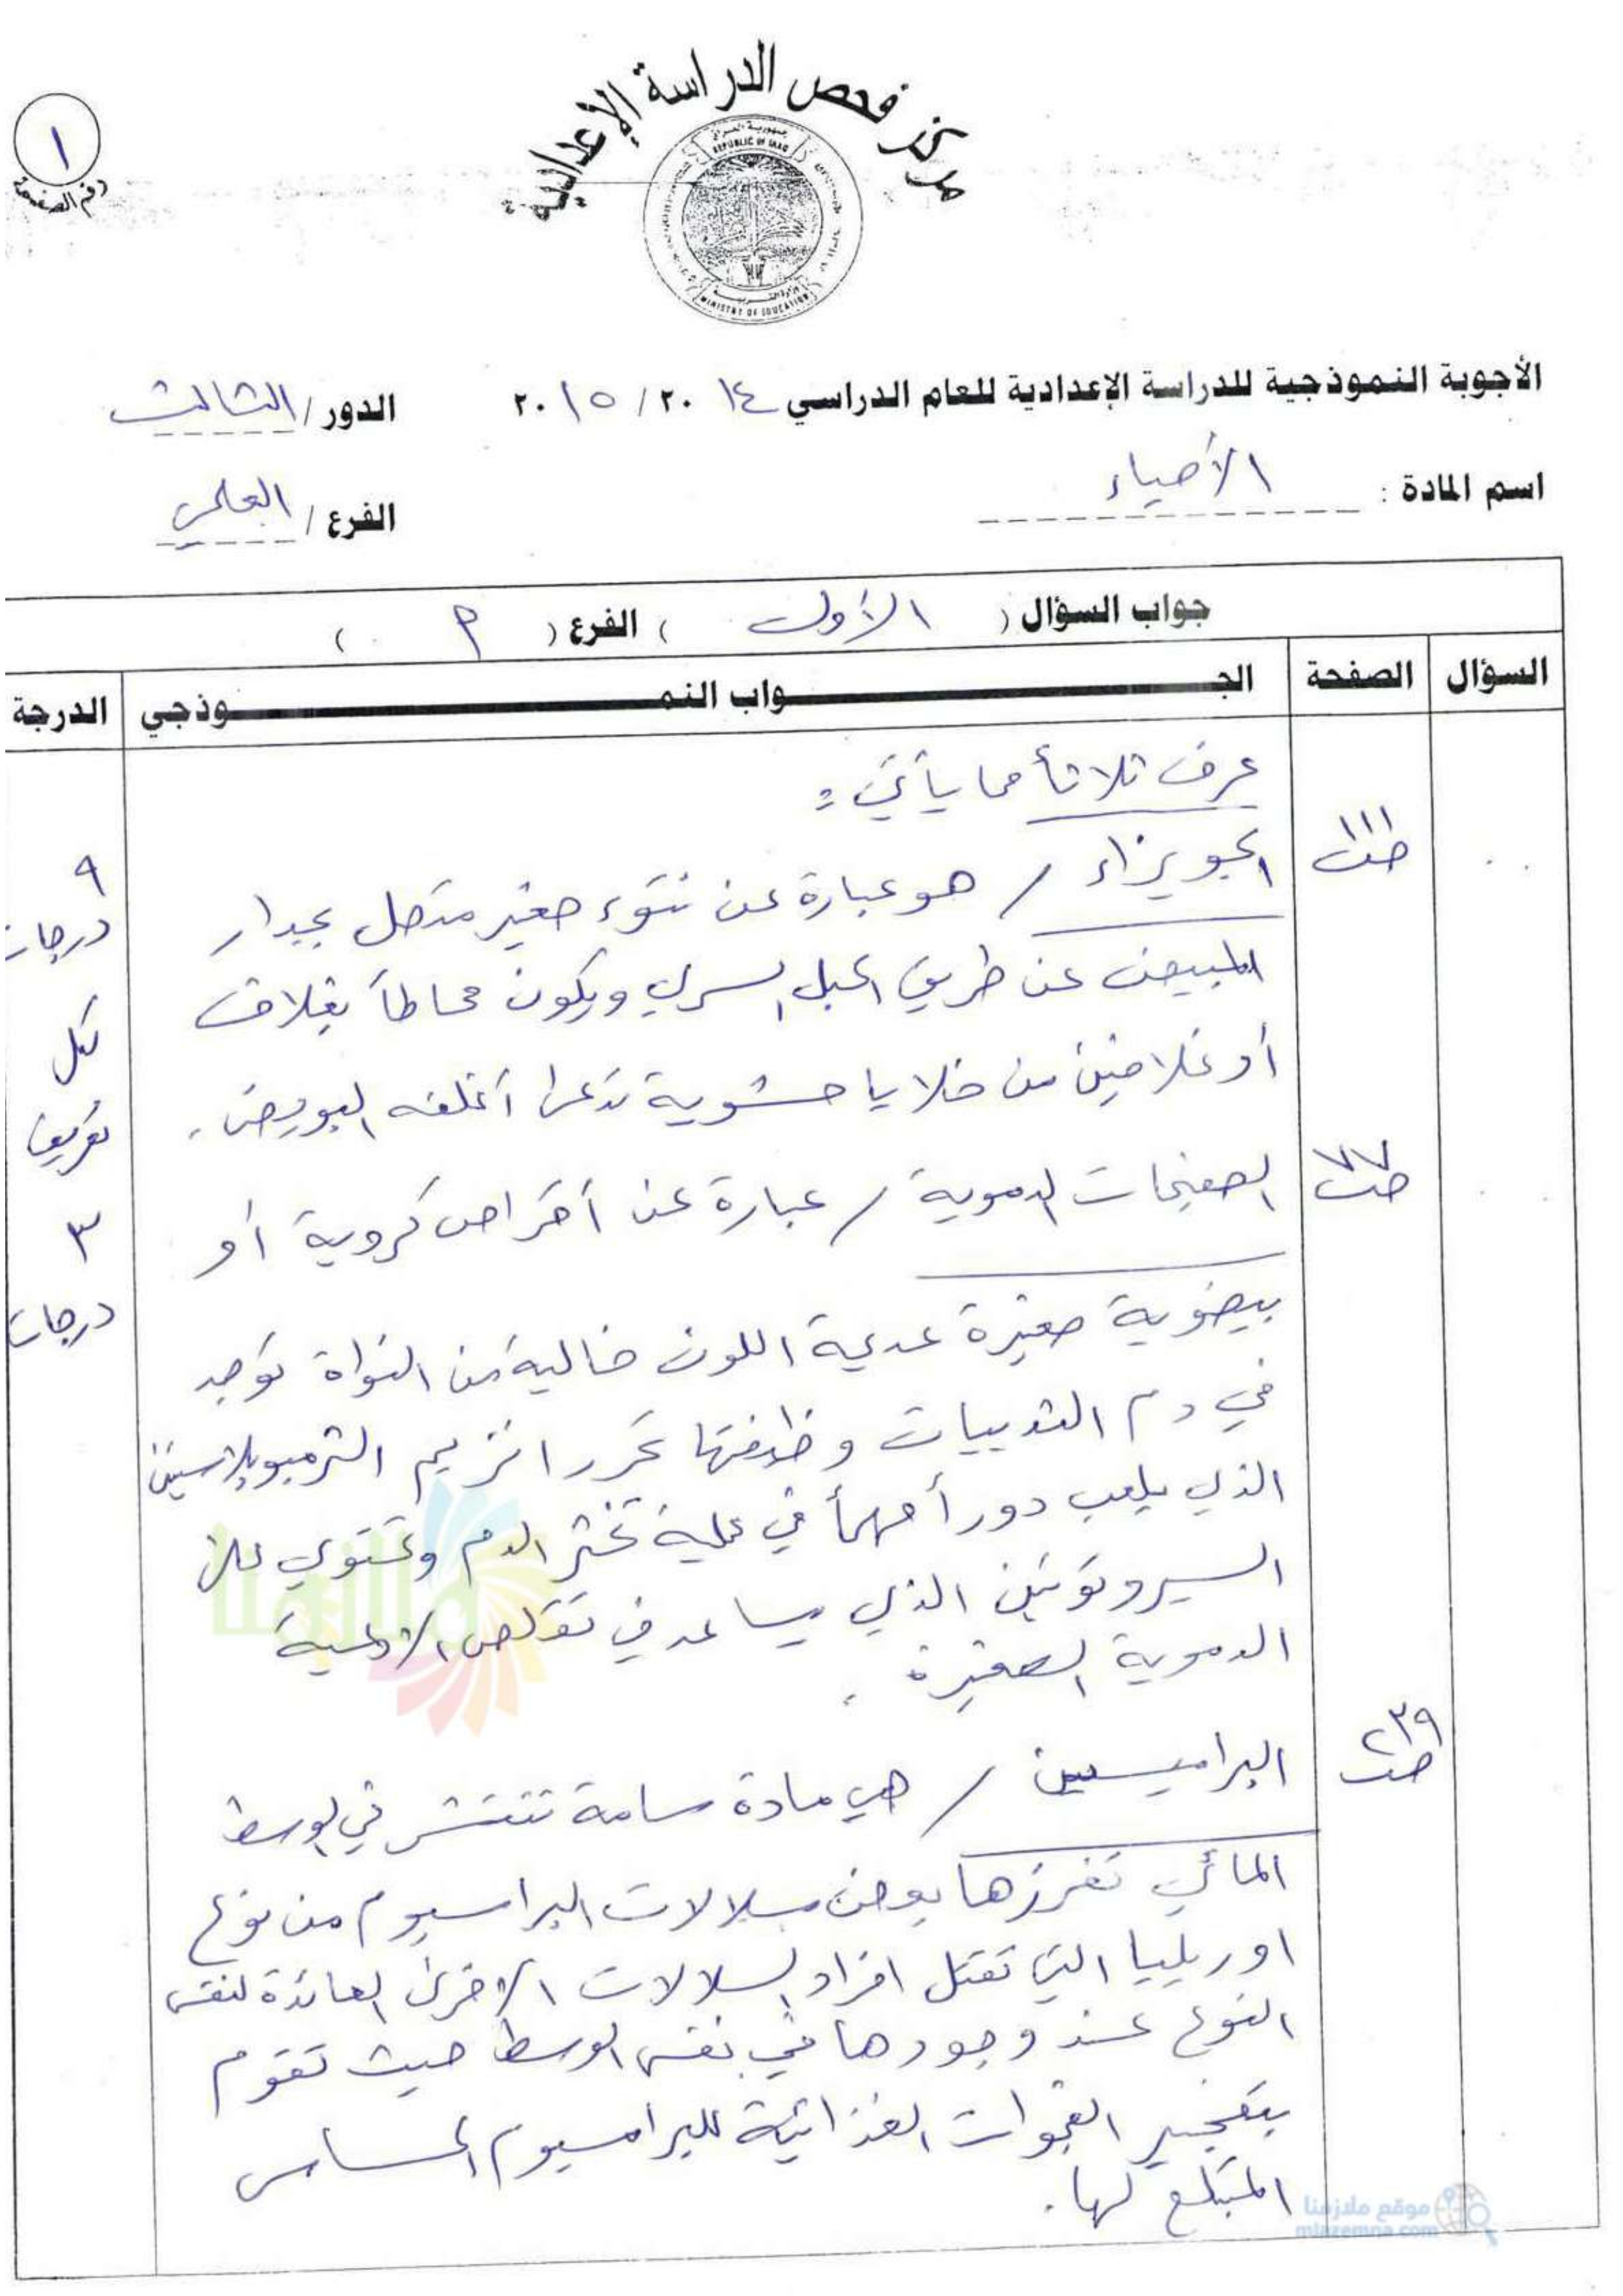 مركز فحص الدراسة الإعدادية
جمهورية العراق
REPUBLIC OF IRAQ
وزارة التربية
MINISTRY OF EDUCATION
١
رقم الصفحة
الأجوبة النموذجية للدراسة الإعدادية للعام الدراسي ٢٠١٤ / ٢٠١٥ الدور / الثالث
اسم المادة : الأحياء الفرع / العلمي
جواب السؤال ( الأول ) الفرع ( P )
السؤال الصفحة الجـــواب النمـــوذجي الدرجة
عرف ثلاثاً مما يأتي :
ص١١١ الجويزاء / هو عبارة عن نتوء صغير متصل بجدار ٩ درجات
المبيض عن طريق الحبل السري ويكون محاطاً بغلاف
أو غلافين من خلايا حشوية تدعى أغلفه البويض . لكل تعريف
ص٧٧ الصفيحات الدموية / عبارة عن أقراص كروية أو ٣
بيضوية صغيرة عديمة اللون خالية من النواة توجد درجات
في دم الثدييات وظيفتها تحرر انزيم الثرمبوبلاستين
الذي يلعب دوراً مهماً في عملية تخثر الدم وتحتوي على
السيروتونين الذي يساعد في تقلص الاوعية
الدموية الصغيرة .
ص٢٣٩ البراميسين / هي مادة سامة تنتشر في الوسط
المائي تفرزها بعض سلالات البراسيوم من نوع
اوريليا التي تقتل افراد السلالات الاخرى العائدة لنفس
النوع عند وجودها في نفس الوسط حيث تقوم
بتفجير الفجوات الغذائية للبرامسيوم الحساس
المبتلع لها .
ملازمنا
موقع ملازمنا
mlazemna.com